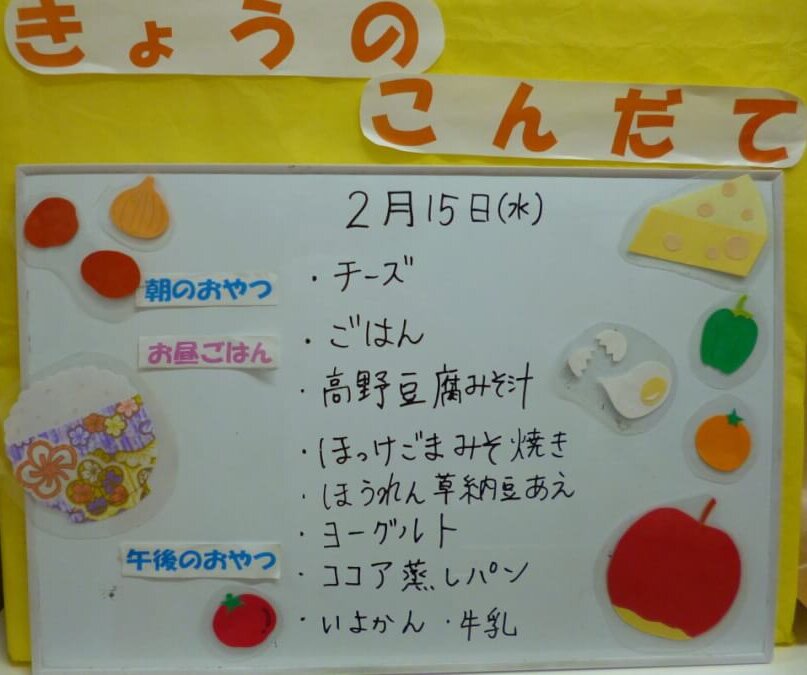 きょうの
こんだて
2月15日(水)
朝のおやつ ・チーズ
お昼ごはん ・ごはん
・高野豆腐みそ汁
・ほっけごまみそ焼き
・ほうれん草納豆あえ
・ヨーグルト
午後のおやつ ・ココア蒸しパン
・いよかん ・牛乳